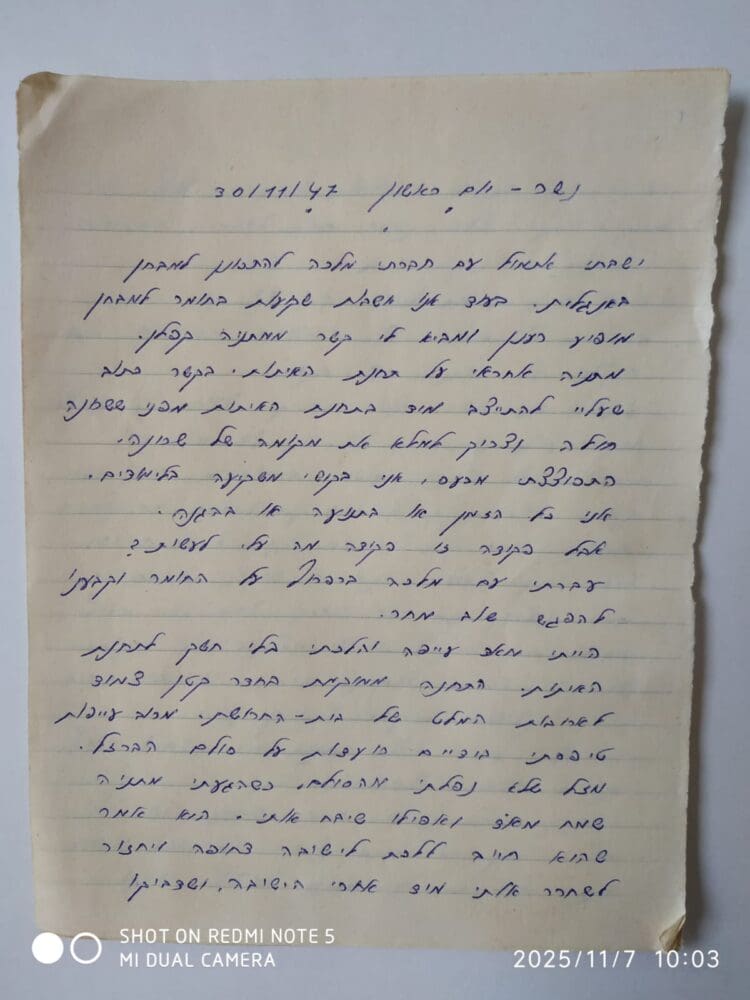 נשר - יום ראשון 30/11/47
ישבתי אתמול עם חברתי מלכה להתכונן למבחן
באנגלית. בעוד אנו שקועות בחומר למבחן
מופיע רענן ומביא לי קשר ממתניה קפלן.
מתניה אחראי על תחנת האיתות. בקשר כתוב
שעליי להתייצב מיד בתחנת האיתות מפני ששרונה
חולה וצריך למלא את מקומה של שרונה.
התפוצצתי מכעס, אני בקושי משקיעה בלימודים.
אני כל הזמן או בתנועה או בהגנה.
אבל פקודה זו פקודה מה עלי לעשות?
עברתי עם מלכה ברפרוף על החומר וקבענו
להפגש שוב מחר.
הייתי מאד עייפה והלכתי בלי חשק לתחנת
האיתות. התחנה ממוקמת בחדר קטן צמוד
לארובות המלט של בית-החרושת. מרוב עייפות
טיפסתי בידיים רועדות על סולם הברזל.
מזל שלא נפלתי מהסולם. כשהגעתי מתניה
שמח מאוד ואפילו שיבח אותי. הוא אמר
שהוא חייב ללכת לישיבה דחופה ויחזור
לשחרר אותי מיד אחרי הישיבה,
SHOT ON REDMI NOTE 5
MI DUAL CAMERA
2025/11/7 10:03